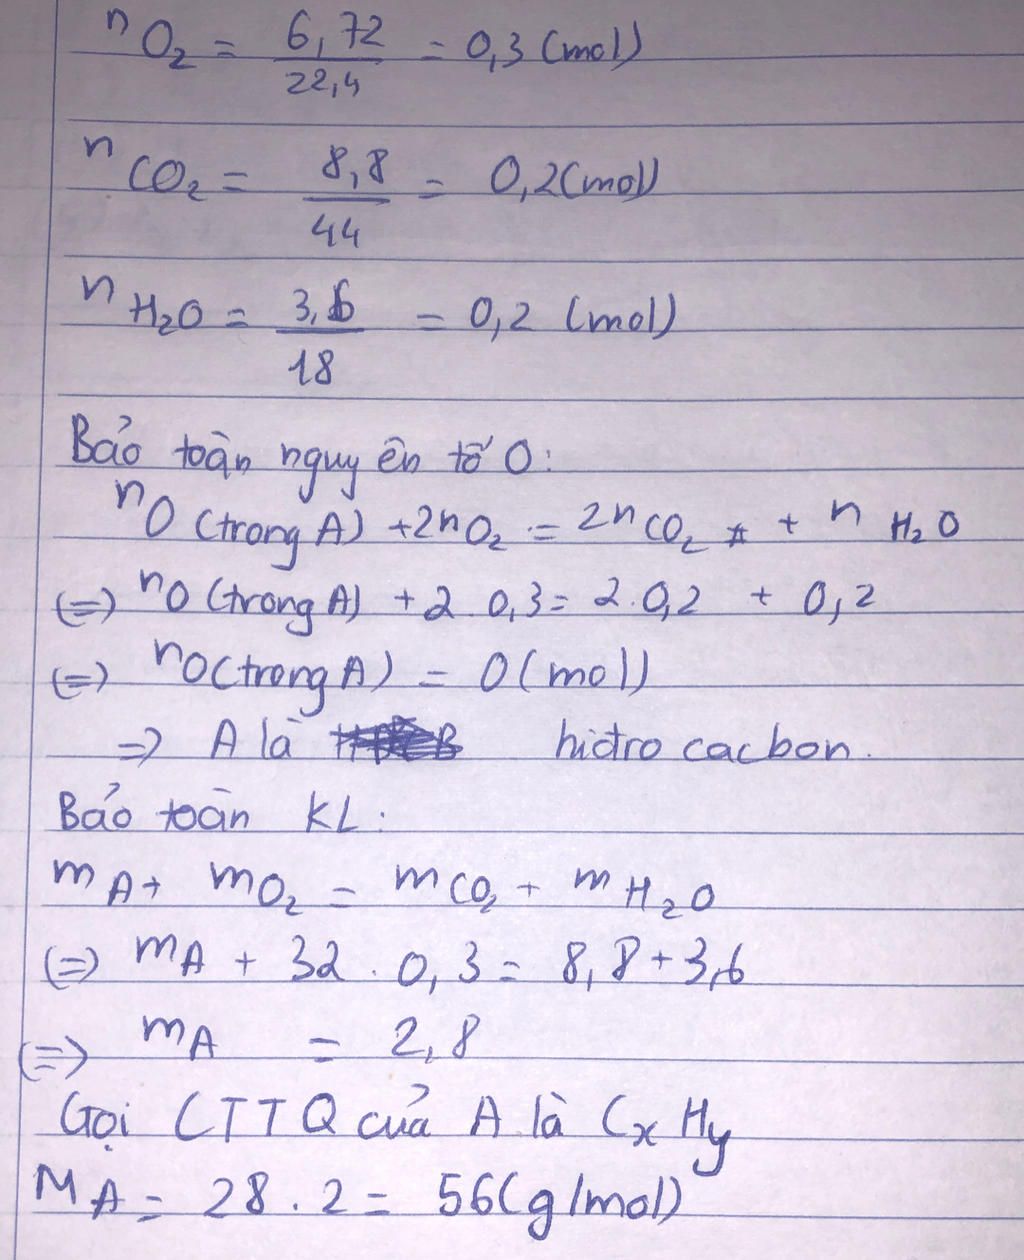 nO₂ = 6,72/22,4 = 0,3 (mol)
nCO₂ = 8,8/44 = 0,2 (mol)
nH₂O = 3,6/18 = 0,2 (mol)
Bảo toàn nguyên tố O:
nO (trong A) + 2nO₂ = 2nCO₂ + nH₂O
(=) nO (trong A) + 2 . 0,3 = 2 . 0,2 + 0,2
(=) nO (trong A) = 0 (mol)
=> A là hiđro cacbon.
Bảo toàn KL:
mA + mO₂ = mCO₂ + mH₂O
(=) mA + 32 . 0,3 = 8,8 + 3,6
(=) mA = 2,8
Gọi CTTQ của A là CxHy
MA = 28 . 2 = 56 (g/mol)